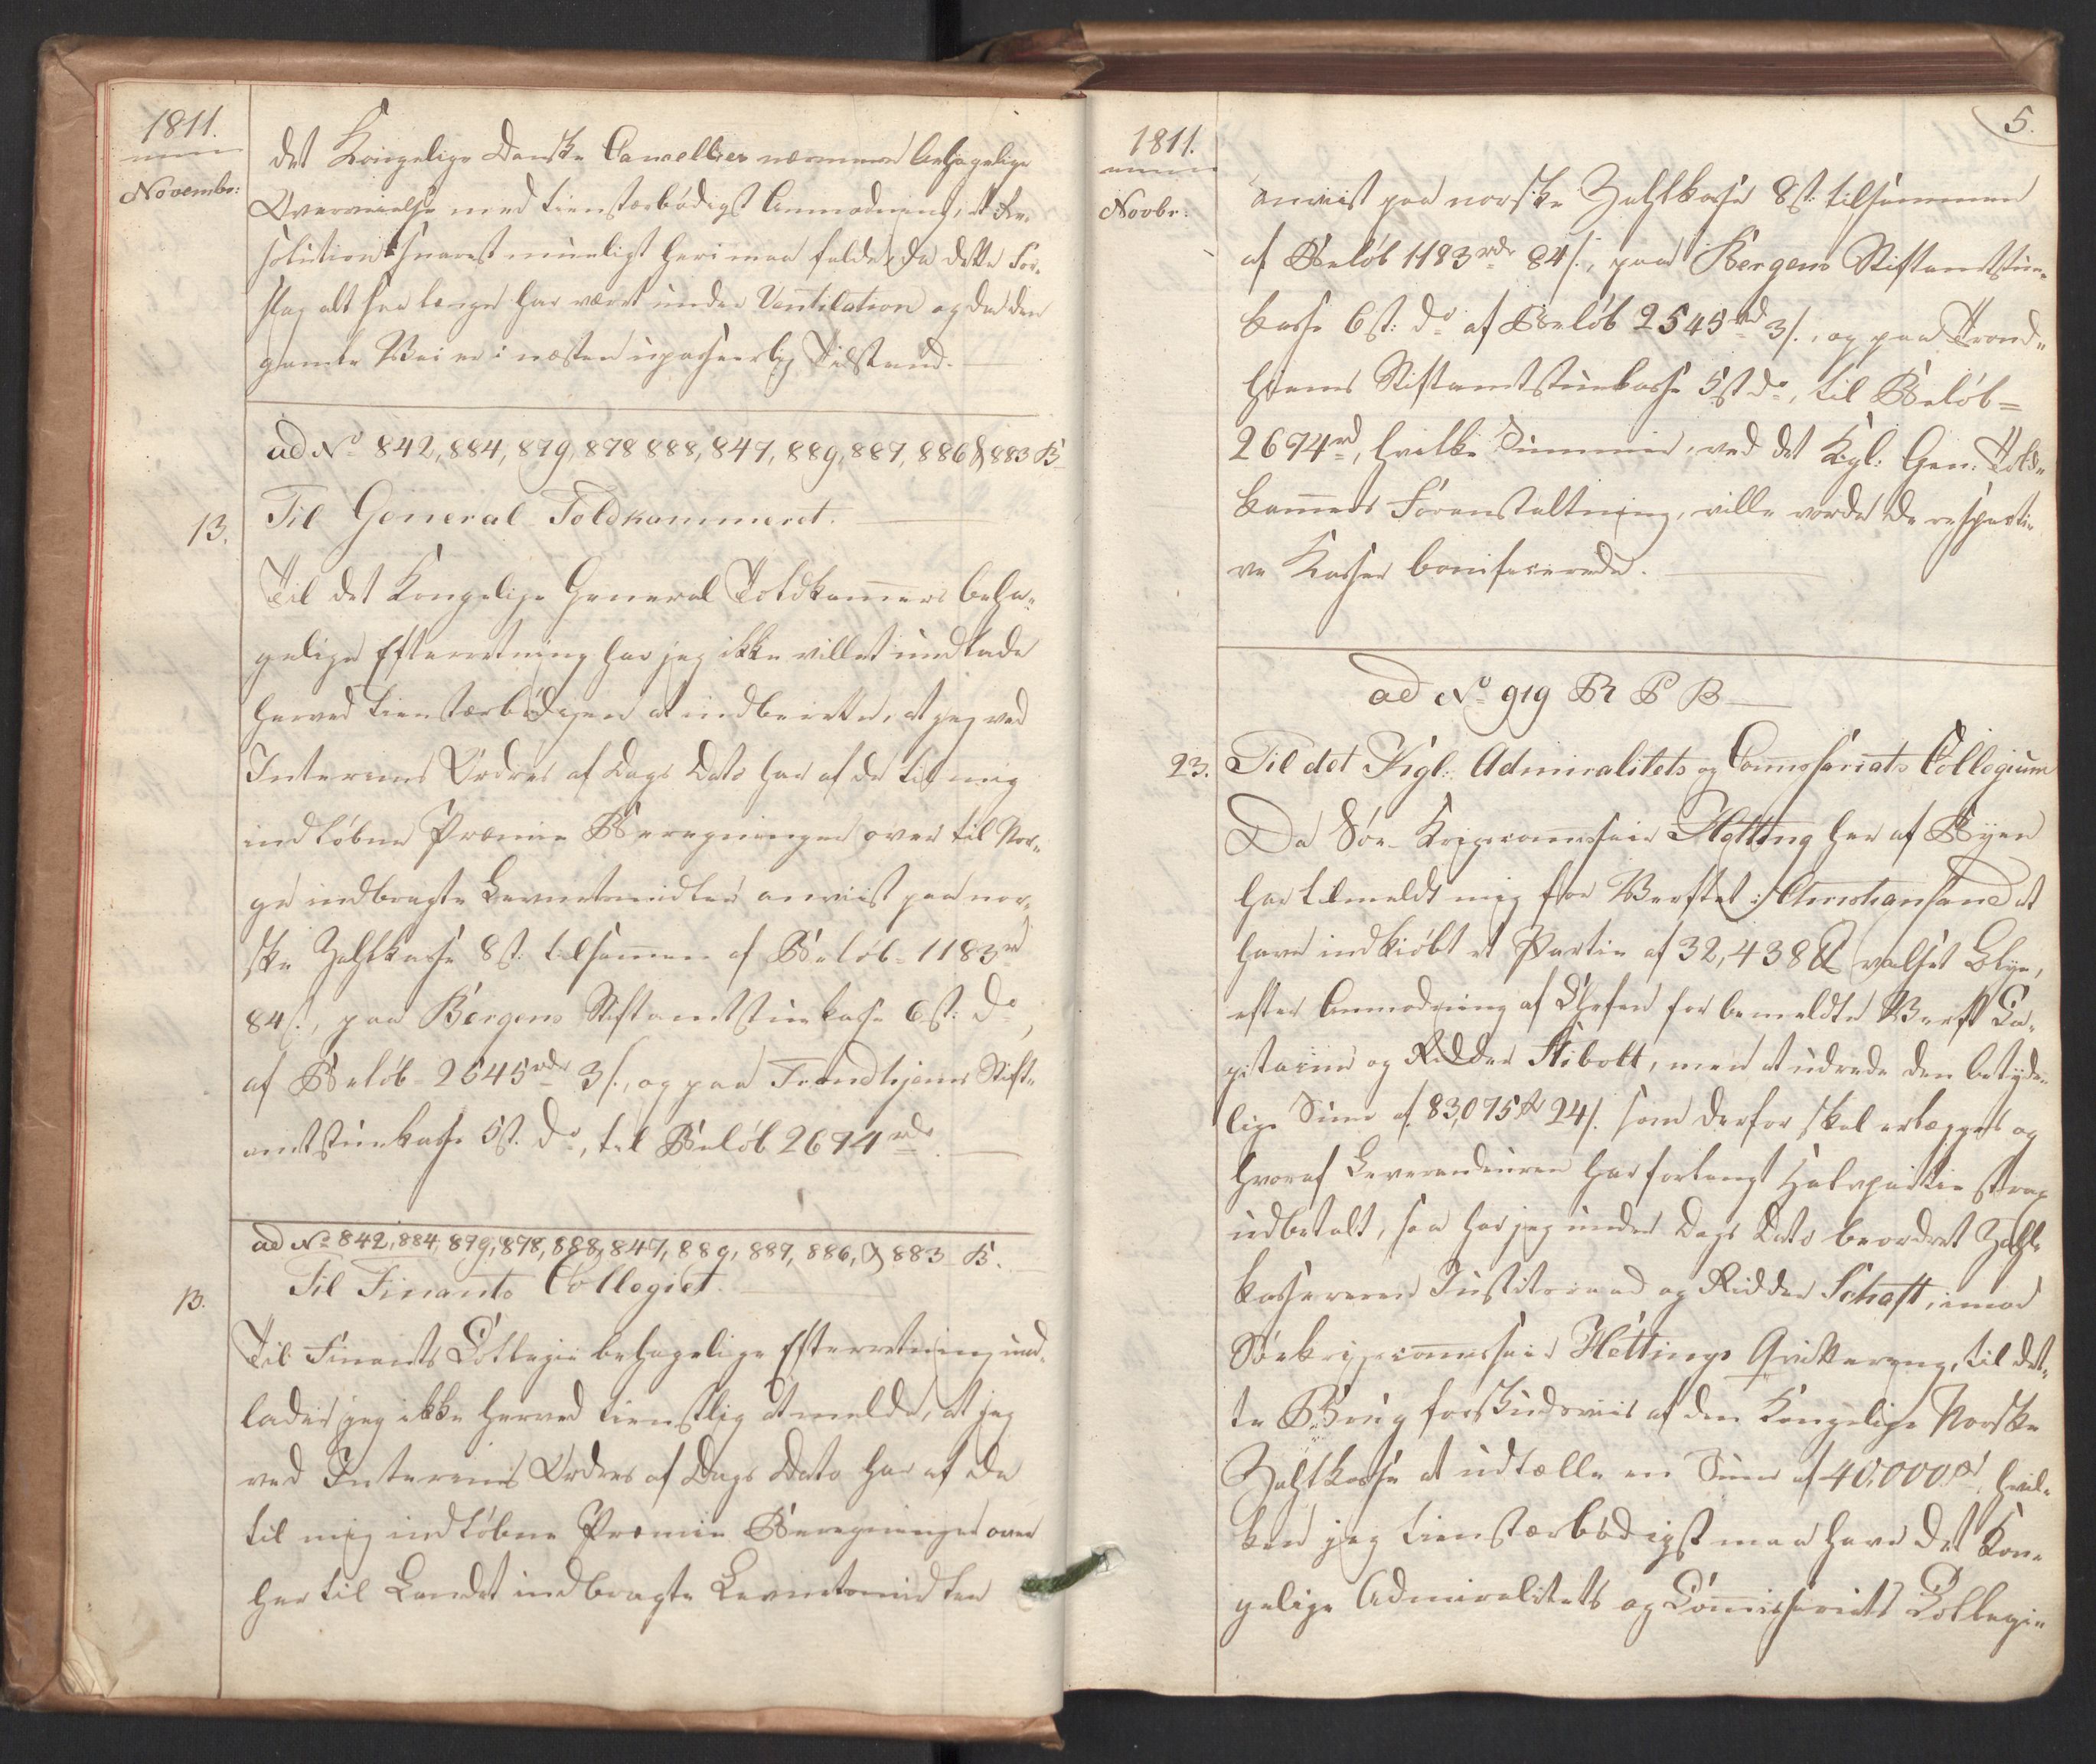 1811.
Novembr:
det Kongelige Danske Cancellies nærmere behagelige
Overveielse med tienstærbödigst Anmodning, at Re„
solution snarest mueligt heri maa falde, da dette For„
slag alt saa længe har været under Ventilation og da den
gamle Vei er i næsten upasseerlig Tilstand.
ad No 842, 884, 879, 878 888, 847, 889, 887, 886 & 883 B
13.
Til General Toldkammeret.
Til det Kongelige General Toldkam̄ers beha„
gelige Efterretning har jeg ikke villet undlade
herved tienstærbödigen at indberette, at jeg ved
Interims Ordres af Dags Dato har af de til mig
indlöbne Præmie Beregninger over til Nor„
ge indbragte Levnetsmidler anviist paa nor„
ske Zahlkasse 8 st. tilsam̄en af Belöb 1183 rd
84 s., paa Bergens Stiftamtstuekasse 6 st. do,
af Belöb 2545 rdr 3 s., og paa Trondhjems Stift„
amtstuekasse 5 st. do, til Belöb 2674 rdr.
ad No 842, 884, 879, 878, 888, 847, 889, 887, 886, & 883 B.
13.
Til Finants Collegiet.
Til Finants Collegii behagelige Efterretning und„
lader jeg ikke herved tienstlig at melde, at jeg
ved Interims Ordres af Dags Dato har af de
til mig indlöbne Præmie Beregninger over
her til Landet indbragte Levnetsmidler
1811.
Novbr.
5.
anviist paa norske Zahlkasse 8 st. tilsammen
af Belöb 1183 rdr 84 s., paa Bergens Stiftamtstue„
kasse 6 st: do af Belöb 2545 rd 3 s., og paa Trond„
hiems Stiftamtstuekasse 5 st do, til Belöb
2674 rd, hvilke Summer, ved det Kgl: Gen. Told„
kam̄ers Foranstaltning, ville vorde de respecti„
ve Kasser bonificerede.
ad No 919 R P B
23.
Til det Kgl: Admiralitets og Com̄issariats Collegium
Da Söe-Krigscom̄issair Hetting her af Byen
har tilmeldt mig for Verftet i Christiansand at
have indkiöbt et Partie af 32,438 ℔ valset Blye,
efter Anmodning af Chefen for bemeldte Verft Ca„
pitaine og Ridder Stibolt, men at udrede den betyde„
lige Sum̄ af 83,075 rd 24 s. som derfor skal erlægges og
hvoraf Leverandeuren har forlangt Halvpartie strax
udbetalt, saa har jeg under Dags Dato beordret Zahl„
kasserer Justitsraad og Ridder Schaft, imod
Söekrigscom̄issair Hettings Qvittering, til det„
te Brug forskudsviis af den Kongelige Norske
Zahlkasse at udtælle en Sum̄ af 40,000 rd, hvil„
ken jeg tienstærbödigst maa have det Kon„
gelige Admiralitets og Com̄issariats Collegie